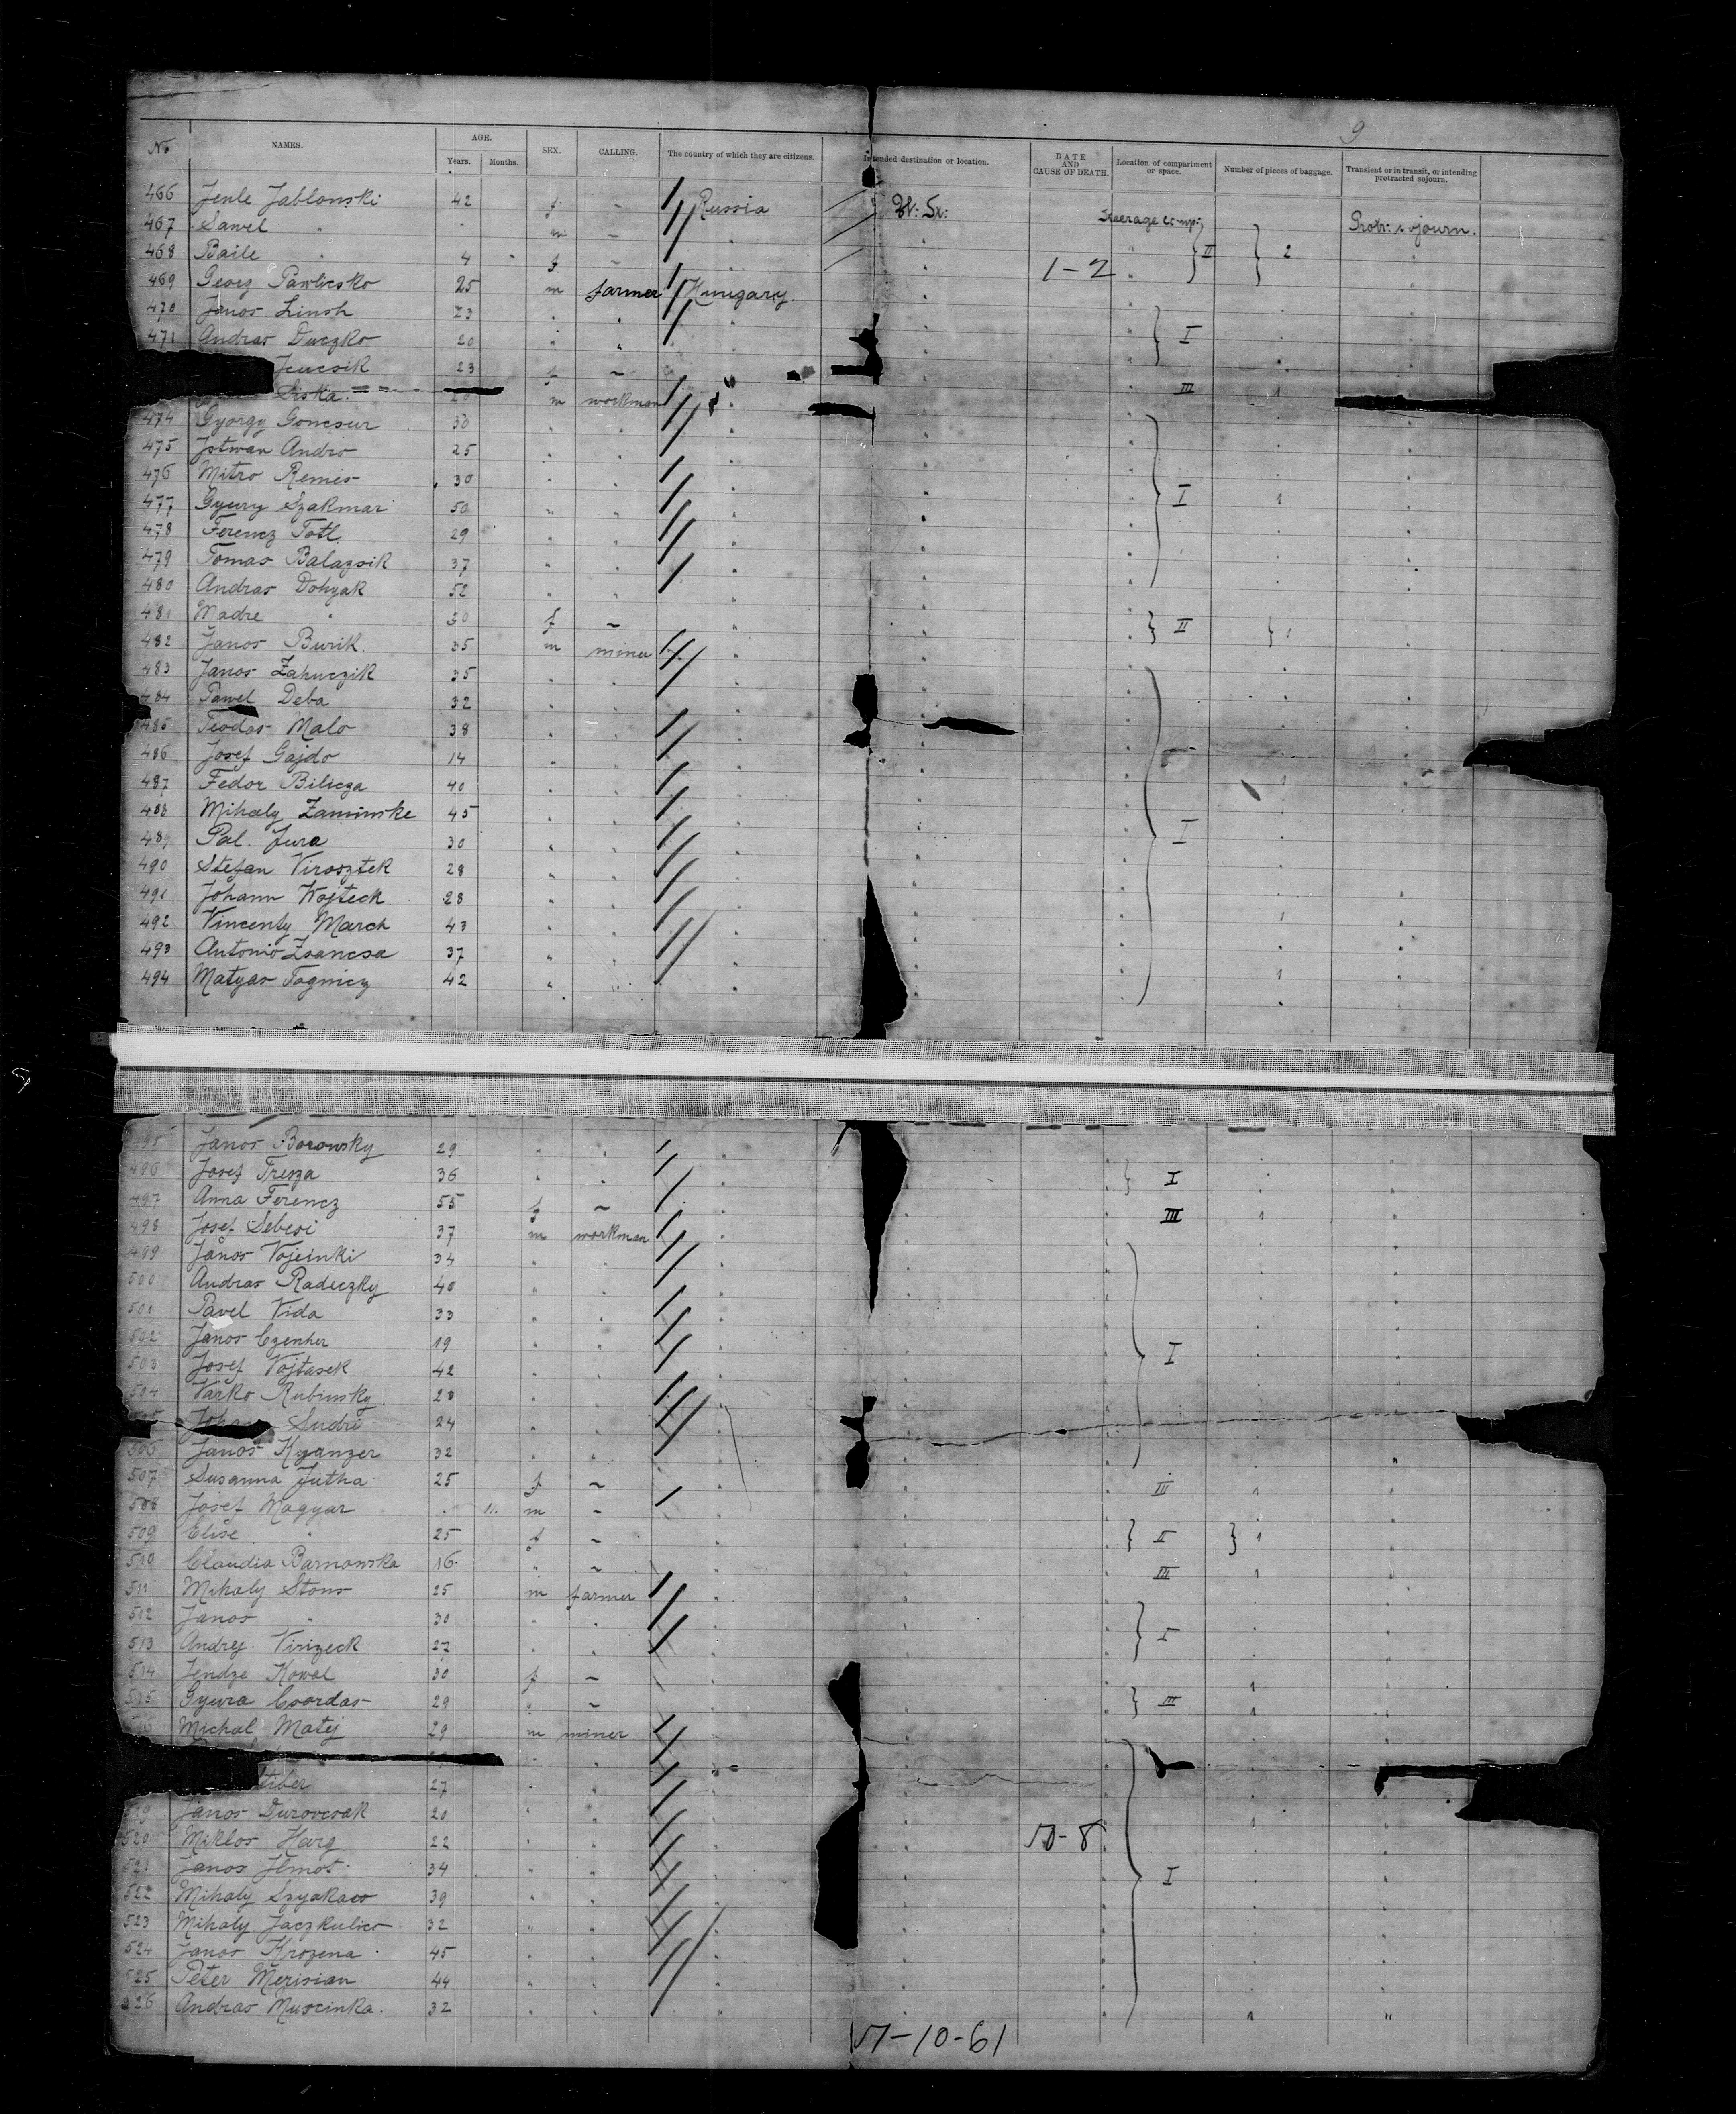 9
No. NAMES. AGE. Years. Months. SEX. CALLING. The country of which they are citizens. Intended destination or location. DATE AND CAUSE OF DEATH. Location of compartment or space. Number of pieces of baggage. Transient or in transit, or intending protracted sojourn.
466 Jenle Jablonski 42 f - Russia Steerage comp: Protr: sojourn.
467 Sawel " . m - "
468 Baile " 4 " f - " 1-2 II 2
469 Georg Pawlicsko 25 m farmer Hungary.
470 Janos Linsh 23 " " "
471 Andras Duczko 20 " " " I
Jencsik 23 f - "
Siska 20 m workman " III 1
474 Gyorgy Goncsur 30 " " "
475 Istwan Andro 25 " " "
476 Mitro Remes 30 " " "
477 Gyury Szakmar 50 " " " I 1
478 Ferencz Totl 29 " " "
479 Tomas Balazsik 37 " " "
480 Andras Dohyak 52 " " "
481 Madre " 50 f - " II 1
482 Janos Burik. 35 m miner "
483 Janos Zahuczik 35 " " "
484 Pawel Deba 32 " " "
485 Teodas Malo 38 " " "
486 Josef Gajdo 14 " " "
487 Fedor Bilicza 40 " " " 1
488 Mihaly Zamimske 45 " " "
489 Pal. Jura 30 " " " I
490 Stefan Virosztek 28 " " "
491 Johann Wojteck 28 " " "
492 Vincenty March 43 " " " 1
493 Antonio Zsancsa 37 " " "
494 Matyas Tognicz 42 " " " 1
495 Janos Borowsky 29 " " "
496 Josef Tresza 36 " " " I
497 Anna Ferencz 55 f - " III 1
498 Josef Sebesi 37 m workman "
499 Janos Vojcinki 34 " " "
500 Andras Radiczky 40 " " "
501 Pavel Vida 33 " " "
502 Janos Czenher 19 " " "
503 Josef Vojtasek 42 " " " I
504 Varko Rubinsky 28 " " "
Sudri 24 " " "
506 Janos Kyanzer 32 " " "
507 Susanna Jutha 25 f - " III 1
508 Josef Magyar . 11. m - "
509 Elise " 25 f - " II 1
510 Claudia Barnowska 16 " - " III 1
511 Mihaly Stons 25 m farmer "
512 Janos " 30 " " "
513 Andrej Virizeck 27 " " " I
514 Jendze Kowal 30 f - " 1
515 Gyura Csordas 29 " - " III 1
516 Michal Matej 29 m miner "
27 " " "
519 Janos Durovcsak 20 " " " 1
520 Miklos Harg 22 " " " 17-8
521 Janos Ilmos 34 " " " I
522 Mihaly Szyakacs 39 " " "
523 Mihaly Jaczkulics 32 " " "
524 Janos Krozena 45 " " "
525 Peter Merisian 44 " " "
526 Andras Muscinka. 32 " " " 1 "
17-10-61